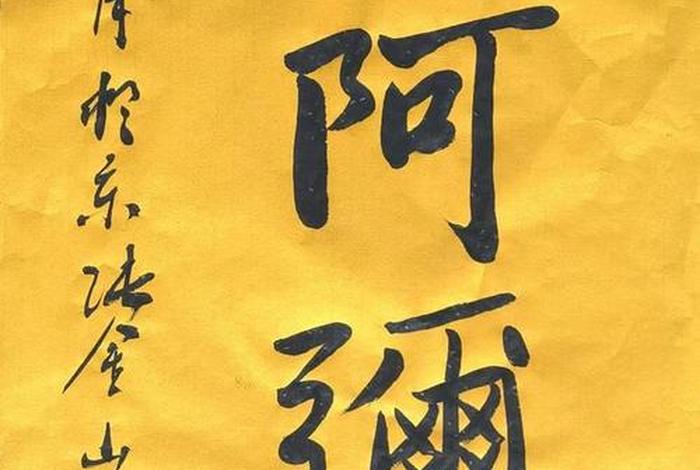 阿彌
於京张金山